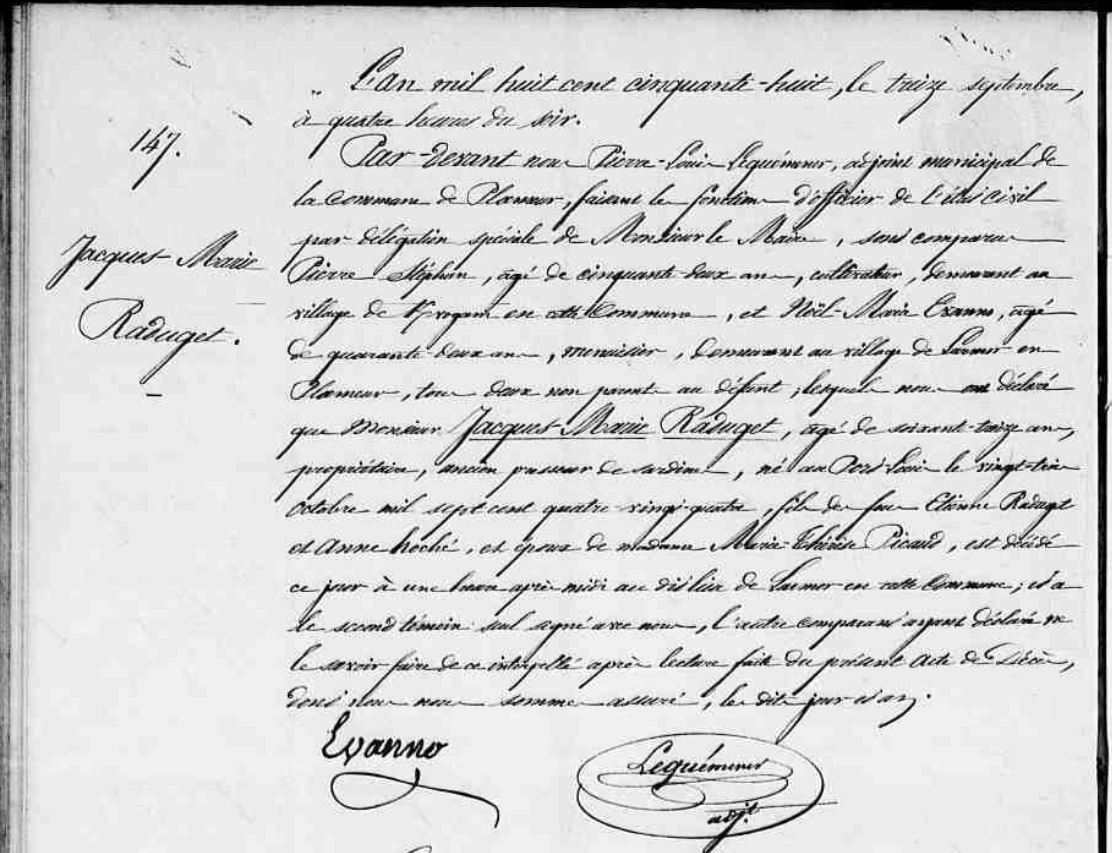 147.
Jacques-Marie
Raduget.
L'an mil huit cent cinquante-huit, le treize septembre,
à quatre heures du soir.
Par-devant nous Pierre-Louis Lequémener, adjoint municipal de
la commune de Plœmeur, faisant les fonctions d'officier de l'état civil
par délégation spéciale de Monsieur le Maire, sont comparus
Pierre Stéphan, âgé de cinquante-deux ans, cultivateur, demeurant au
village de en cette Commune, et Noël-Marie Evanno, âgé
de quarante-deux ans, menuisier, demeurant au village de Larmor en
Plœmeur, tous deux non parents au défunt; lesquels nous ont déclaré
que Monsieur Jacques-Marie Raduget, âgé de soixante-treize ans,
propriétaire, ancien presseur de sardines, né au Port-Louis le vingt-trois
octobre mil sept cent quatre-vingt-quatre, fils de feus Etienne Raduget
et Anne hoché, et époux de madame Marie-Thérèse Picaud, est décédé
ce jour à une heure après-midi au dit lieu de Larmor en cette Commune; et a
le second témoin seul signé avec nous, l'autre comparant ayant déclaré ne
le savoir faire de ce interpellé après lecture faite du présent acte de Décès,
dont nous nous sommes assuré, les dits jour et an.
Evanno
Lequémener
adj.t